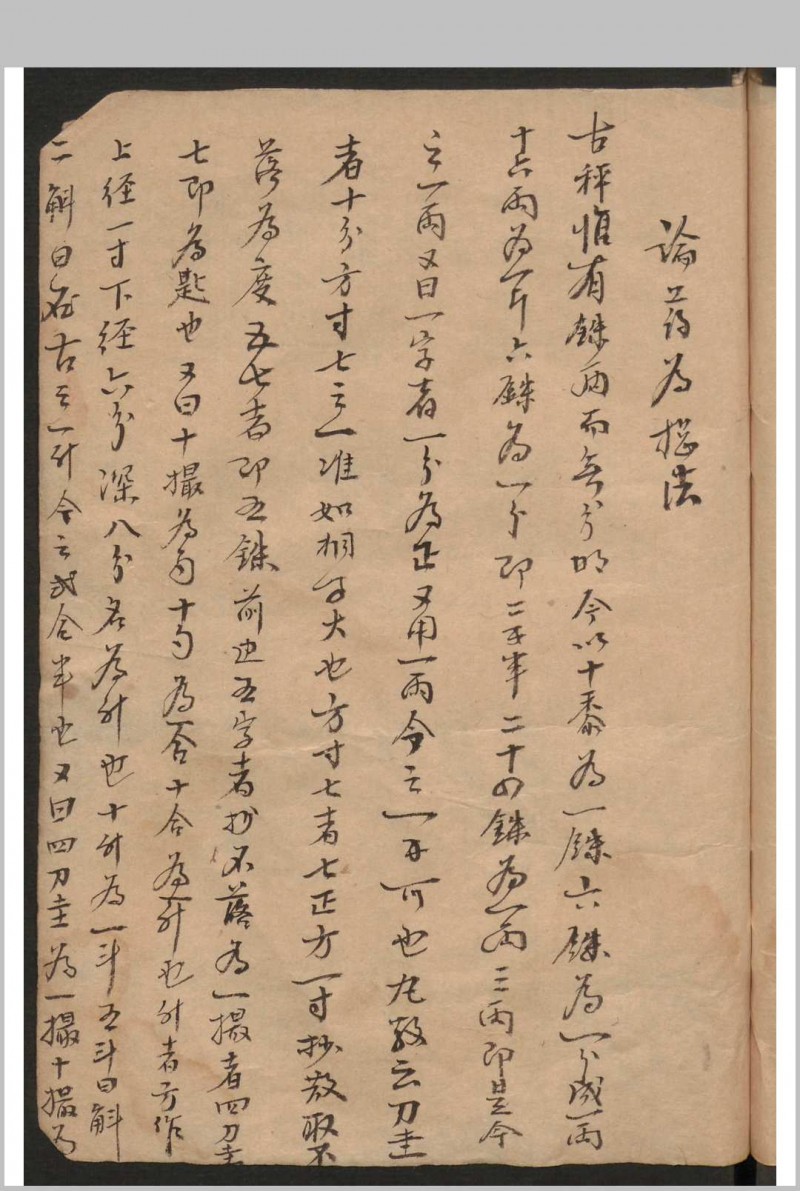 論药為捴法
古秤惟有銖两而無分明今以十黍為一銖六銖為一分成一両
十六两為一斤六銖為一分即二子半二十四銖為一両三两即是今
之一两又曰一字者一分為正又用一两今之一子可也丸散云刀圭
者十分方寸七之一准如桐子大也方寸七者七正方一寸抄散取不
落為度五七者即五銖前也五字者抄不落為一撮者四刀圭
七即為匙也又曰十撮為勺十勺為一合十合為一升也升者方作
上径一寸下径六分深八分名為升也十升為一斗五斗曰斛
二斛曰石古之一升今之弍合半也又曰四刀圭為一撮十撮為